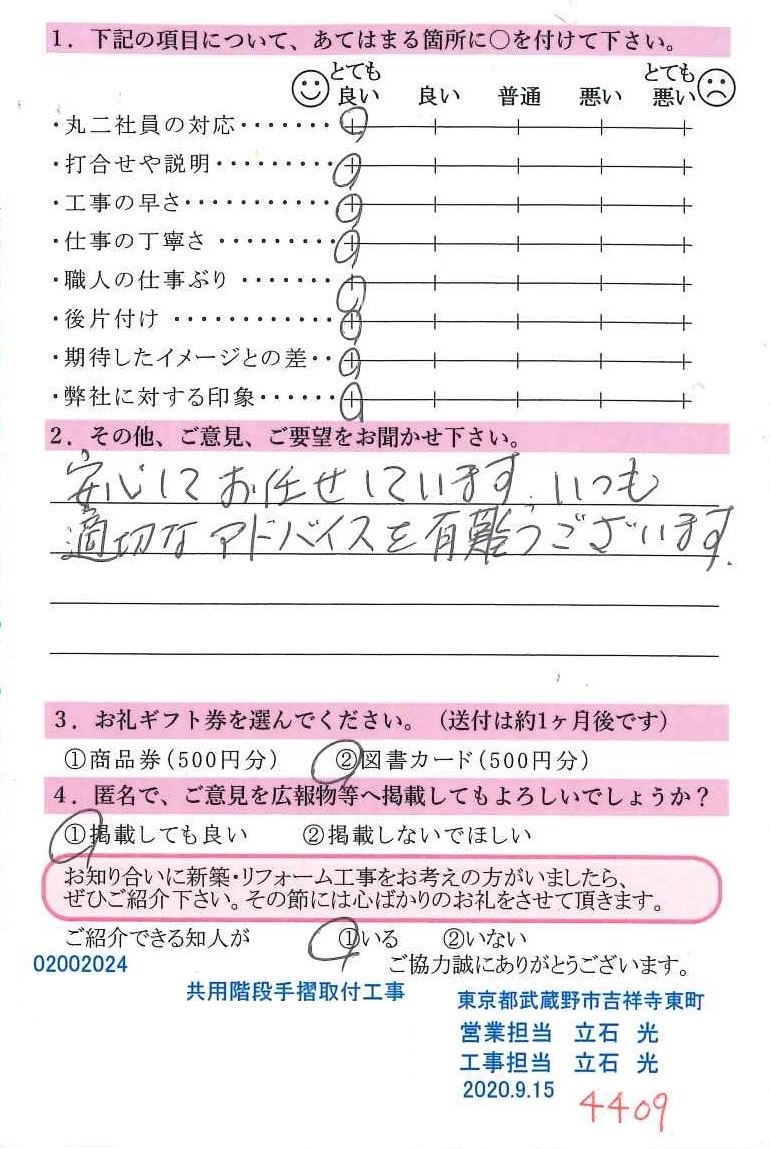 1．下記の項目について、あてはまる箇所に○を付けて下さい。
とても良い 良い 普通 悪い とても悪い
・丸二社員の対応・・・・・・・
・打合せや説明・・・・・・・・・
・工事の早さ・・・・・・・・・・・
・仕事の丁寧さ・・・・・・・・・
・職人の仕事ぶり・・・・・・・
・後片付け・・・・・・・・・・・・
・期待したイメージとの差・・
・弊社に対する印象・・・・・・
2．その他、ご意見、ご要望をお聞かせ下さい。
安心してお任せしています．いつも
適切なアドバイスを有難うございます．
3．お礼ギフト券を選んでください。（送付は約1ヶ月後です）
①商品券（500円分） ②図書カード（500円分）
4．匿名で、ご意見を広報物等へ掲載してもよろしいでしょうか？
①掲載しても良い ②掲載しないでほしい
お知り合いに新築・リフォーム工事をお考えの方がいましたら、
ぜひご紹介下さい。その節には心ばかりのお礼をさせて頂きます。
ご紹介できる知人が ①いる ②いない
ご協力誠にありがとうございます。
02002024
共用階段手摺取付工事
東京都武蔵野市吉祥寺東町
営業担当 立石 光
工事担当 立石 光
2020.9.15
4409